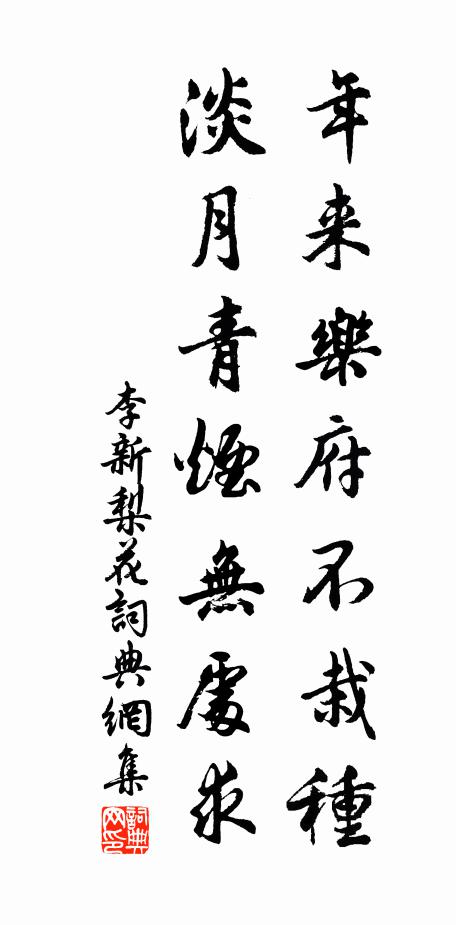 年来樂府不栽種
淡月青煙無處求
李新梨花詞典網集
詞典網印